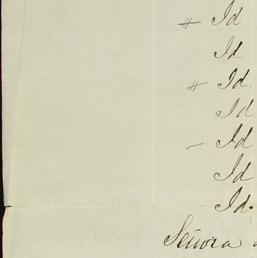 # Id
Id
# Id.
Id
- Id
Id
Id.
Señora